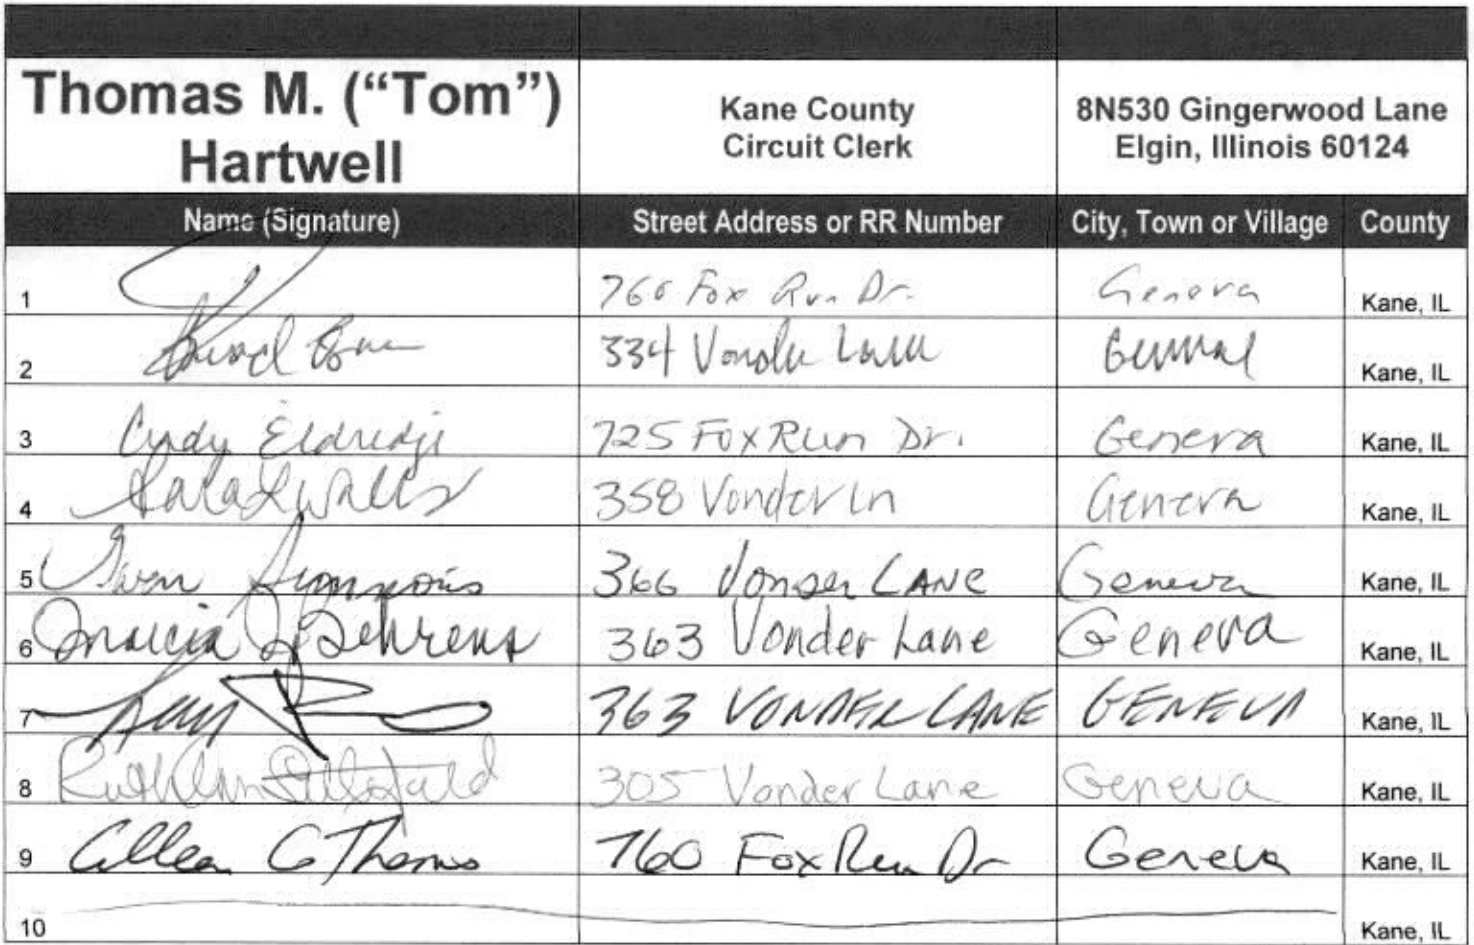 Thomas M. ("Tom") Hartwell
Kane County Circuit Clerk
8N530 Gingerwood Lane Elgin, Illinois 60124
Name (Signature) Street Address or RR Number City, Town or Village County
1 760 Fox Run Dr. Geneva Kane, IL
2 334 Geneva Kane, IL
3 Cindy Eldredge 725 Fox Run Dr. Geneva Kane, IL
4 358 Vonder Ln Geneva Kane, IL
5 Gwen Simmons 366 Vonder LANE Geneva Kane, IL
6 Marcia J. Behrens 363 Vonder Lane Geneva Kane, IL
7 363 VONDER LANE GENEVA Kane, IL
8 305 Vonder Lane Geneva Kane, IL
9 Colleen C Thomas 760 Fox Run Dr Geneva Kane, IL
10 Kane, IL